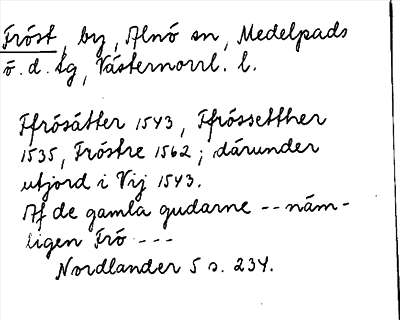 Fröst, by, Alnö sn, Medelpads
ö. d. tg, Västernorrl. l.
Ffrösätter 1543, Ffrössetther
1535, Fröstre 1562; därunder
utjord i Vij 1543.
Af de gamla gudarne -- näm-
ligen Frö ---
Nordlander 5 s. 234.